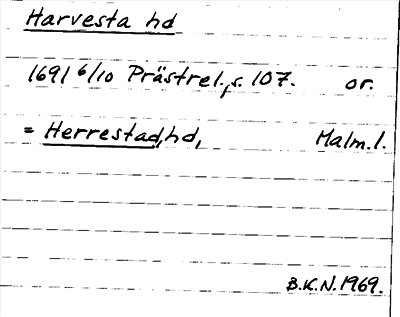 Harvesta hd
1691 6/10 Prästrel., s. 107. or.
= Herrestad, hd, Malm. l.
B.K.N. 1969.